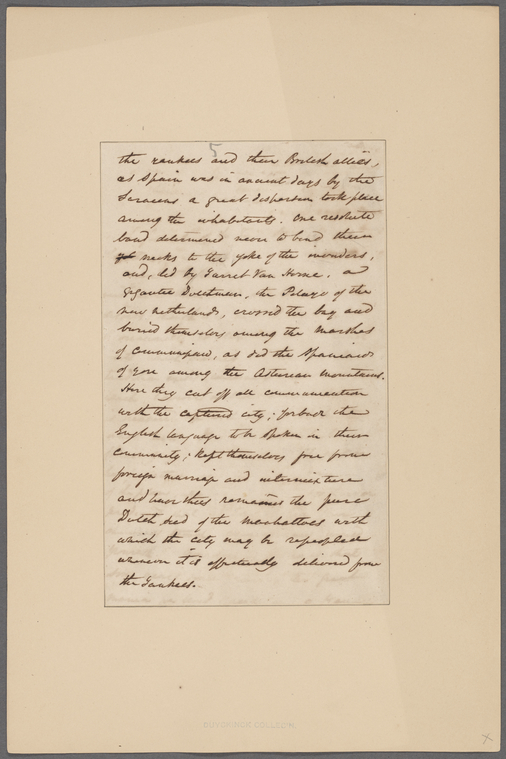 5
the yankees and their British allies,
as Spain was in ancient days by the
Saracens a great dispersion took place
among the inhabitants. One resolute
band determined never to bend their
necks to the yoke of the invaders,
and, led by Garret Van Horne, a
gigantic Dutchman, the Pelayo of the
new netherlands, crossed the bay and
buried themselves among the marshes
of Communipaw, as did the Spaniards
of yore among the Asturian mountains.
Here they cut off all communication
with the captured city; forbad the
English language to be spoken in their
community; kept themselves free from
foreign marriage and intermixture
and have thus remained the pure
Dutch seed of the Manhattoes with
which the city may be repeopled
whenever it is effectually delivered from
the Yankees.
DUYCKINCK COLLEC'N.
x